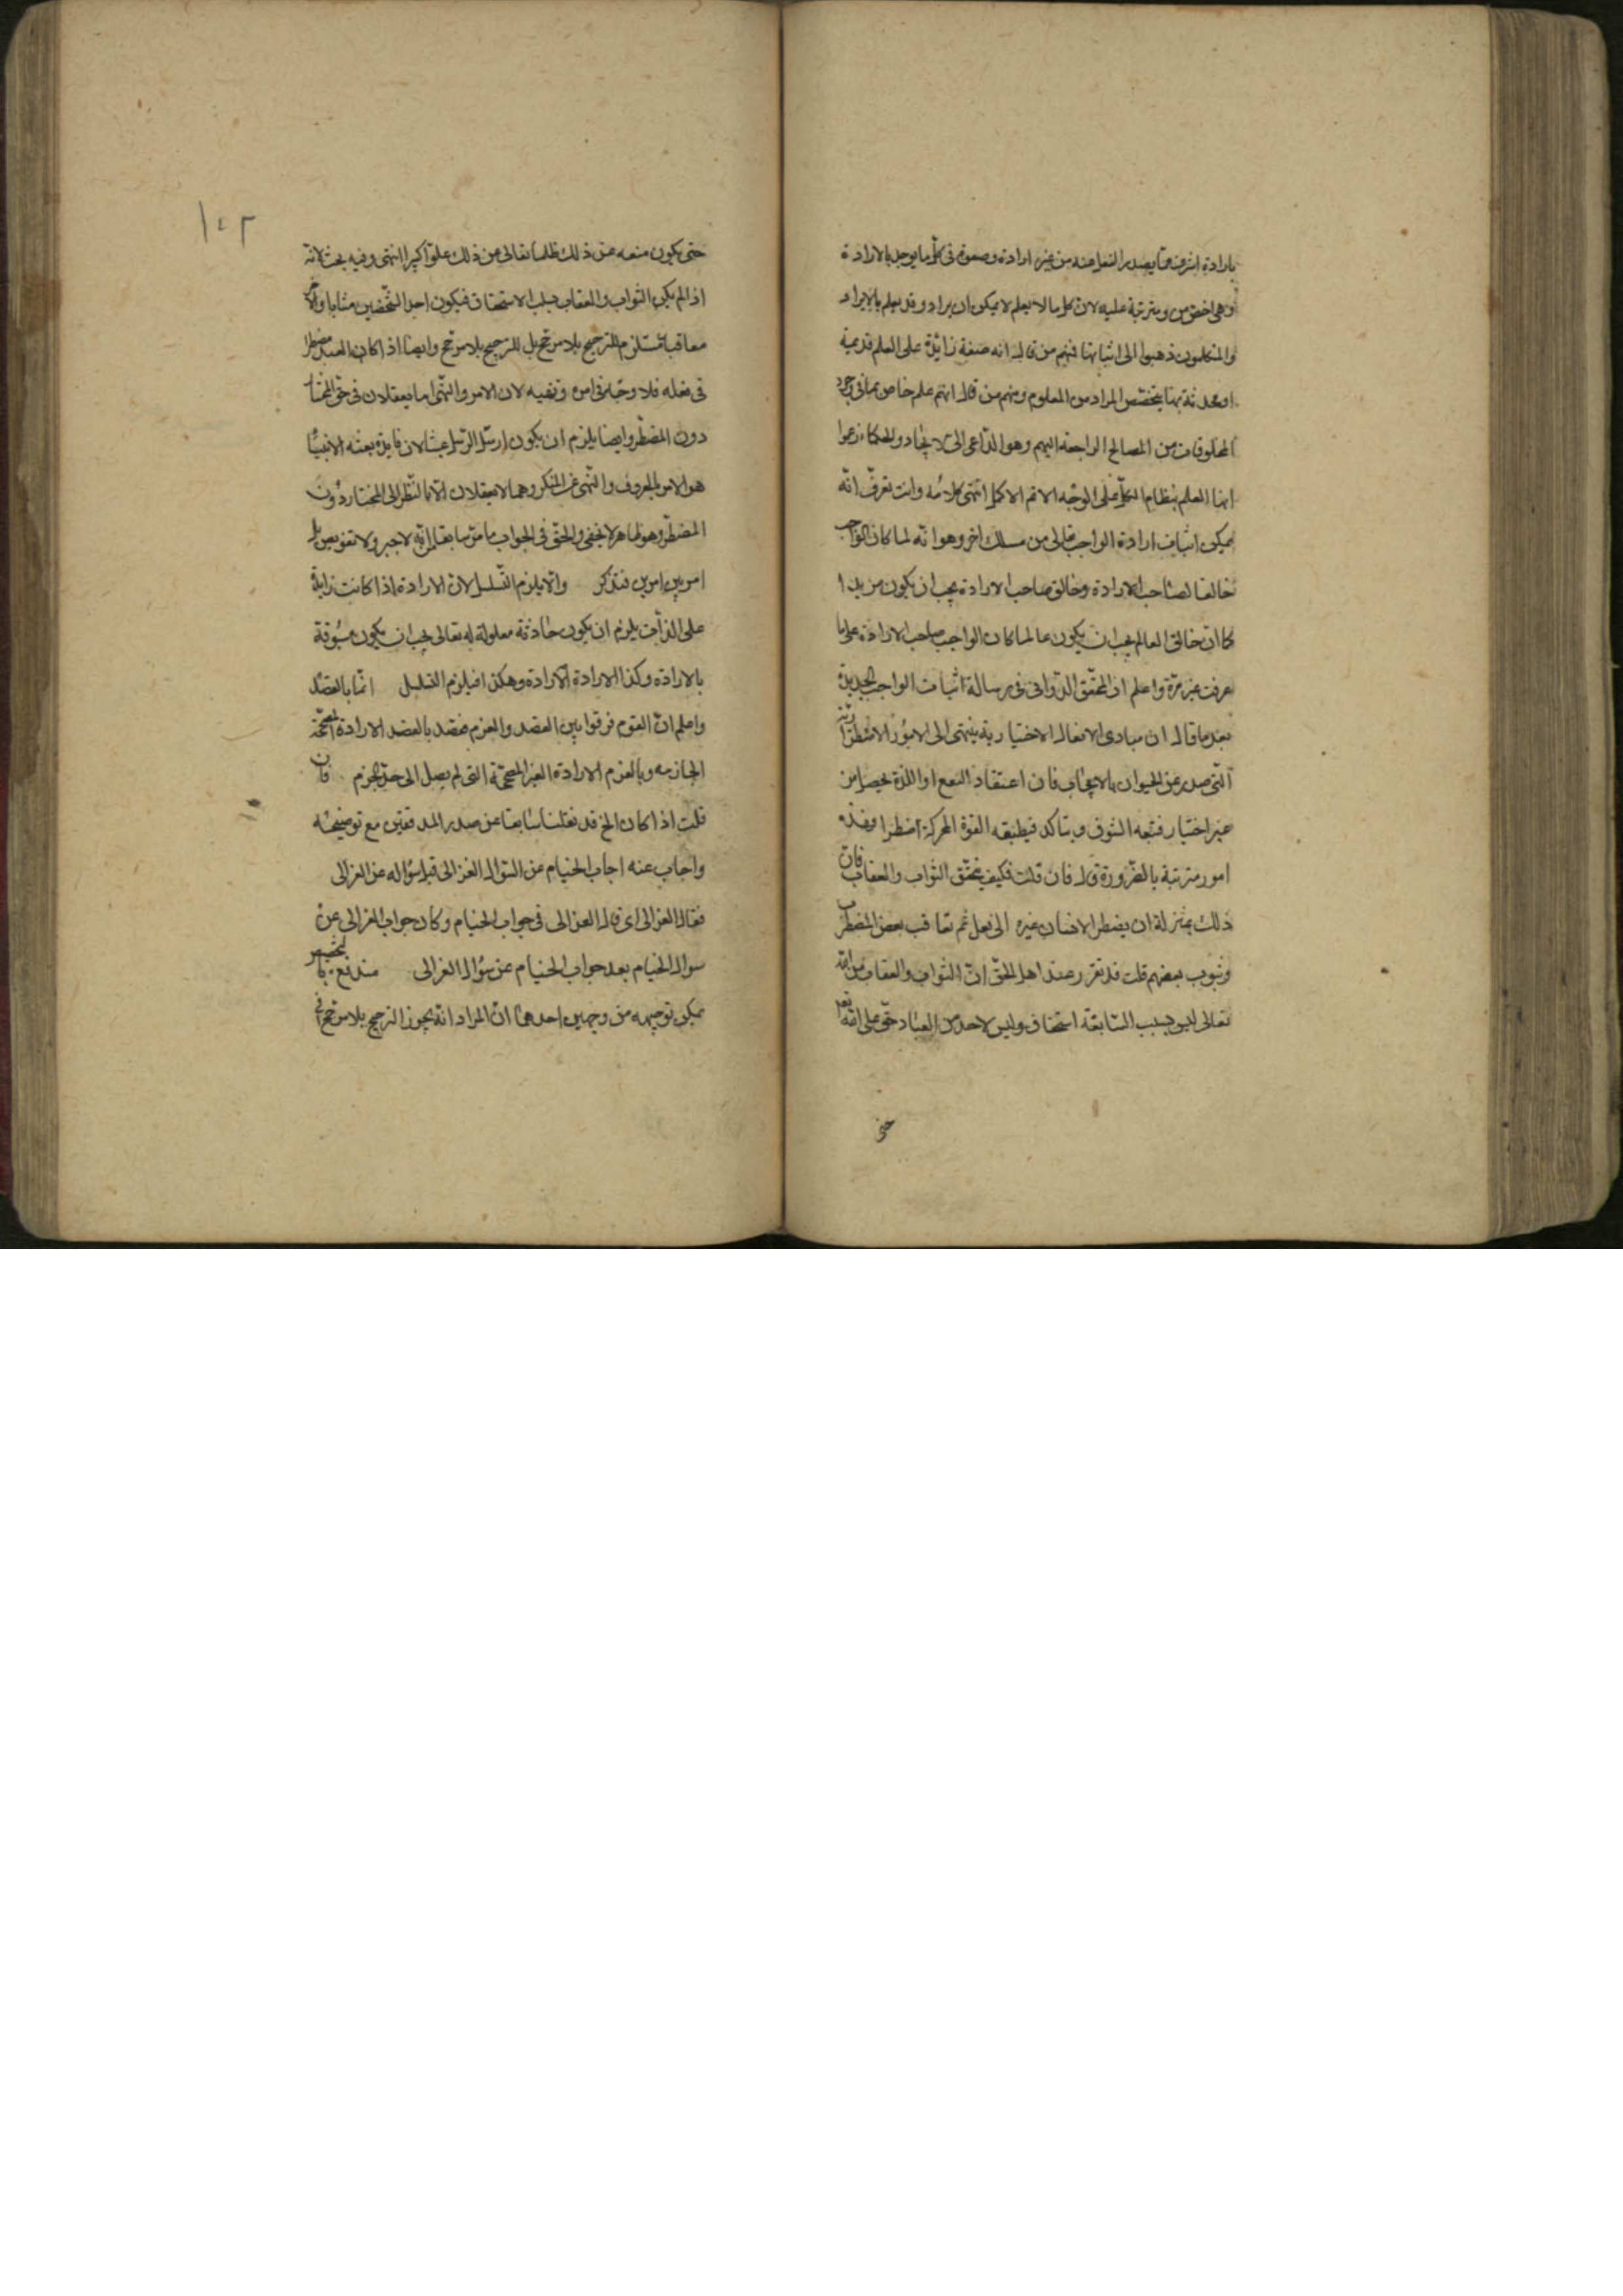 بارادة اشرف مما يصدر الفعل عنه من غير ارادة وصعوة فى كل ما يوجد بالارادة
وهى اخص من ومترتبة عليه لان كل ما لا يعلم لا يمكن ان يراد وقد يعلم ما لا يراد
والمتكلمون ذهبوا الى اثباتها فمنهم من قال انه صفة زائدة على العلم قديمة
او محدثة بها يتخصص المراد من المعلوم ومنهم من قال انهم علم خاص بما فى وجود
المخلوقات من المصالح الراجعة اليهم وهو الداعى الى الايجاد والحكماء زعموا
انها العلم بنظام الكل على الوجه الاتم الاكمل انتهى كلامه وانت تعرف انه
يمكن اثبات ارادة الواجب تعالى من مسلك اخر وهو انه لما كان الواجب
خالقا لصاحب الارادة وخالق صاحب الارادة يجب ان يكون مريدا
كما ان خالق العالم يجب ان يكون عالما كان الواجب صاحب الارادة على ما
عرفت غير مرة واعلم ان المحقق الدوانى فى رسالة اثبات الواجب الجديدة
بعد ما قال ان مبادى الافعال الاختيارية ينتهى الى الامور الاضطرارية
التى صدر عن الحيوان بالايجاب فان اعتقاد النفع او اللذة يحصل من
غير اختيار فتبعه الشوق ويتاكد فيطيعه القوة المحركة اضطرارا وهذه
امور مترتبة بالضرورة قال فان قلت فكيف يتحقق الثواب والعقاب فان
ذلك بمنزلة ان يضطر الانسان غيره الى فعل ثم تعاقب بعض المضطر
وثيوب بعضهم قلت قد تقرر عند اهل الحق ان الثواب والعقاب من الله
تعالى ليس بسبب السابقة استحقاق وليس لاحد من العباد حق على الله تعالى
حتى
١٠٢
حتى يكون منعه عن ذلك ظلما تعالى عن ذلك علوا كبيرا انتهى وفيه بحث لانه
اذا لم يكن الثواب والعقاب بسبب الاستحقاق فيكون احد الشخصين مثابا والاخر
معاقبا مستلزم للترجيح بلا مرجح بل للترجيح بلا مرجح وايضا اذا كان العبد مضطرا
فى فعله فلا وجه فى امره ونهيه لان الامر والنهى انما يعقلان فى حق المختار
دون المضطر وايضا يلزم ان يكون ارسال الرسل عبثا لان فايدة بعثه الانبياء
هو الامر بالمعروف والنهى عن المنكر وهما لا يعقلان الا بالنظر الى المختار دون
المضطر وهو ظاهر لا يخفى والحق فى الجواب ما مر سابقا من انه لا جبر ولا تفويض بل
امر بين امرين فتذكر والا يلزم التسلسل لان الارادة اذا كانت زايدة
على الذات يلزم ان يكون حادثة معلولة له تعالى يجب ان يكون مسبوقة
بالارادة وكذا الارادة الارادة وهكذا فيلزم التسلسل انما بالقصد
واعلم ان القوم فرقوا بين القصد والعزم فقصد بالقصد الارادة المصححة
الجازمه وبالعزم الارادة الغير المصححة التى لم يصل الى حد الجزم فان
قلت اذا كان الخ قد نقلنا سابقا عن صدر المدققين مع توضيحه
واجاب عنه اجاب الخيام عن السؤال الغزالى قبل سؤاله عن الغزالى
فقال الغزالى اى قال الغزالى فى جواب الخيام وكان جواب الغزالى عن
سوال الخيام بعد جواب الخيام عن سؤال الغزالى مندفع
يمكن توجيهه من وجهين احدهما ان المراد انه يجوز الترجيح بلا مرجح